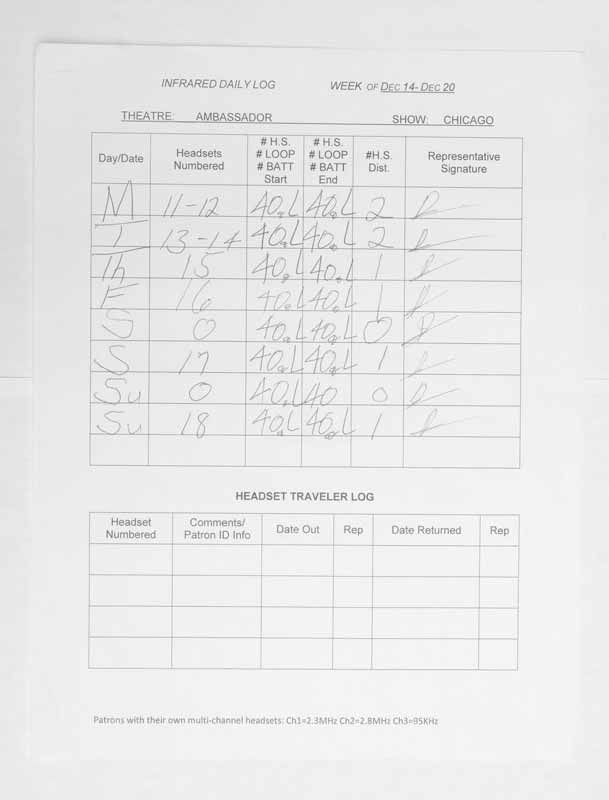 INFRARED DAILY LOG WEEK OF DEC 14- DEC 20
THEATRE: AMBASSADOR SHOW: CHICAGO
Day/Date Headsets Numbered # H.S. # LOOP # BATT Start # H.S. # LOOP # BATT End #H.S. Dist. Representative Signature
M 11-12 40 L 40 L 2
T 13-14 40 L 40 L 2
Th 15 40 L 40 L 1
F 16 40 L 40 L 1
S 0 40 L 40 L 0
S 17 40 L 40 L 1
Su 0 40 L 40 0
Su 18 40 L 40 L 1
HEADSET TRAVELER LOG
Headset Numbered Comments/ Patron ID Info Date Out Rep Date Returned Rep
Patrons with their own multi-channel headsets: Ch1=2.3MHz Ch2=2.8MHz Ch3=95KHz